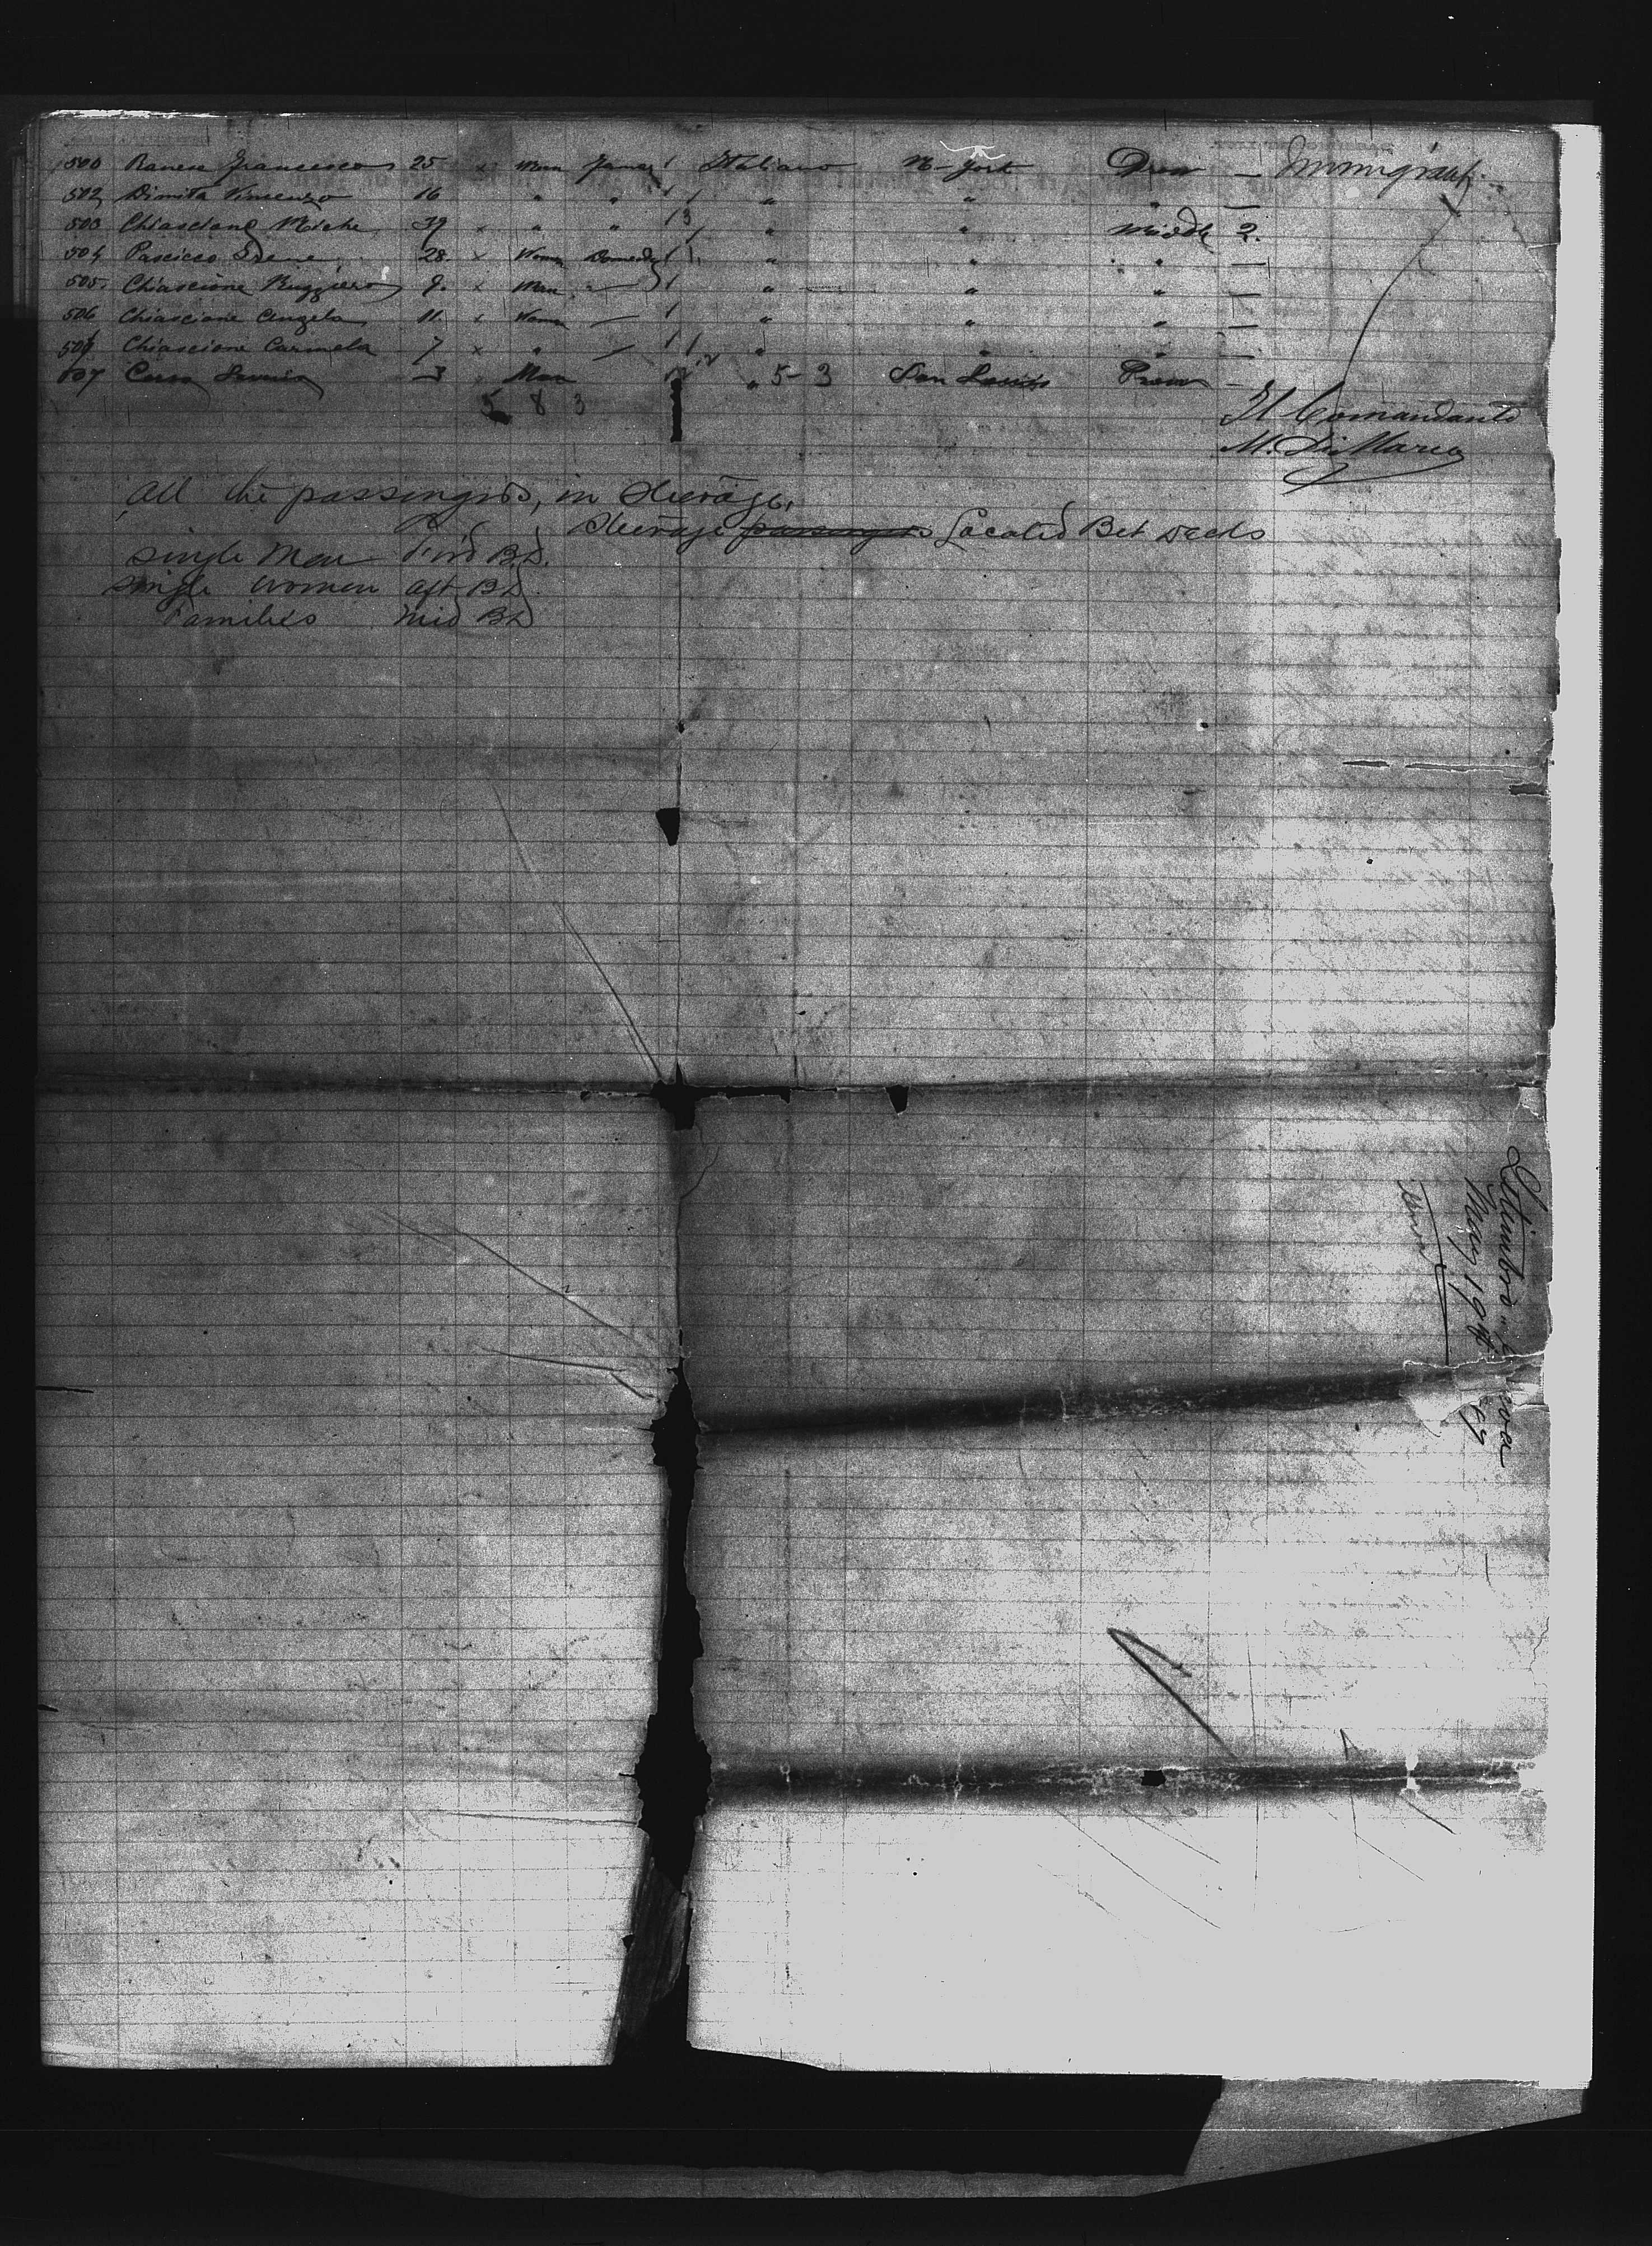 500 Ranese Francesco 25 x Man Farmer 1 Italiano N-York Prow — Immigrant
502 Dimita Vincenzo 16 " " 1 " " " —
503 Chiascione Miche 39 x " " 13 " " Middle 2.
504 Pascicco 28. x Woman Domestic 1 " " " —
505. Chiascione Ruggiero 9. x Man " 1 " " " —
506 Chiascione Angela 11. x Woman — 1 " " " —
507 Chiascione Carmela 7 x " — 1 " " " —
507 3 Man " 5-3 San Louis Prow —
5 8 3
Il Comandante
M. Di Maria
All the passengers, in Steerage,
Steerage passengers Located Bet Decks
Single Men For'd B.D.
Single Women Aft B D
Families Mid B D
Letimbro
May 19th